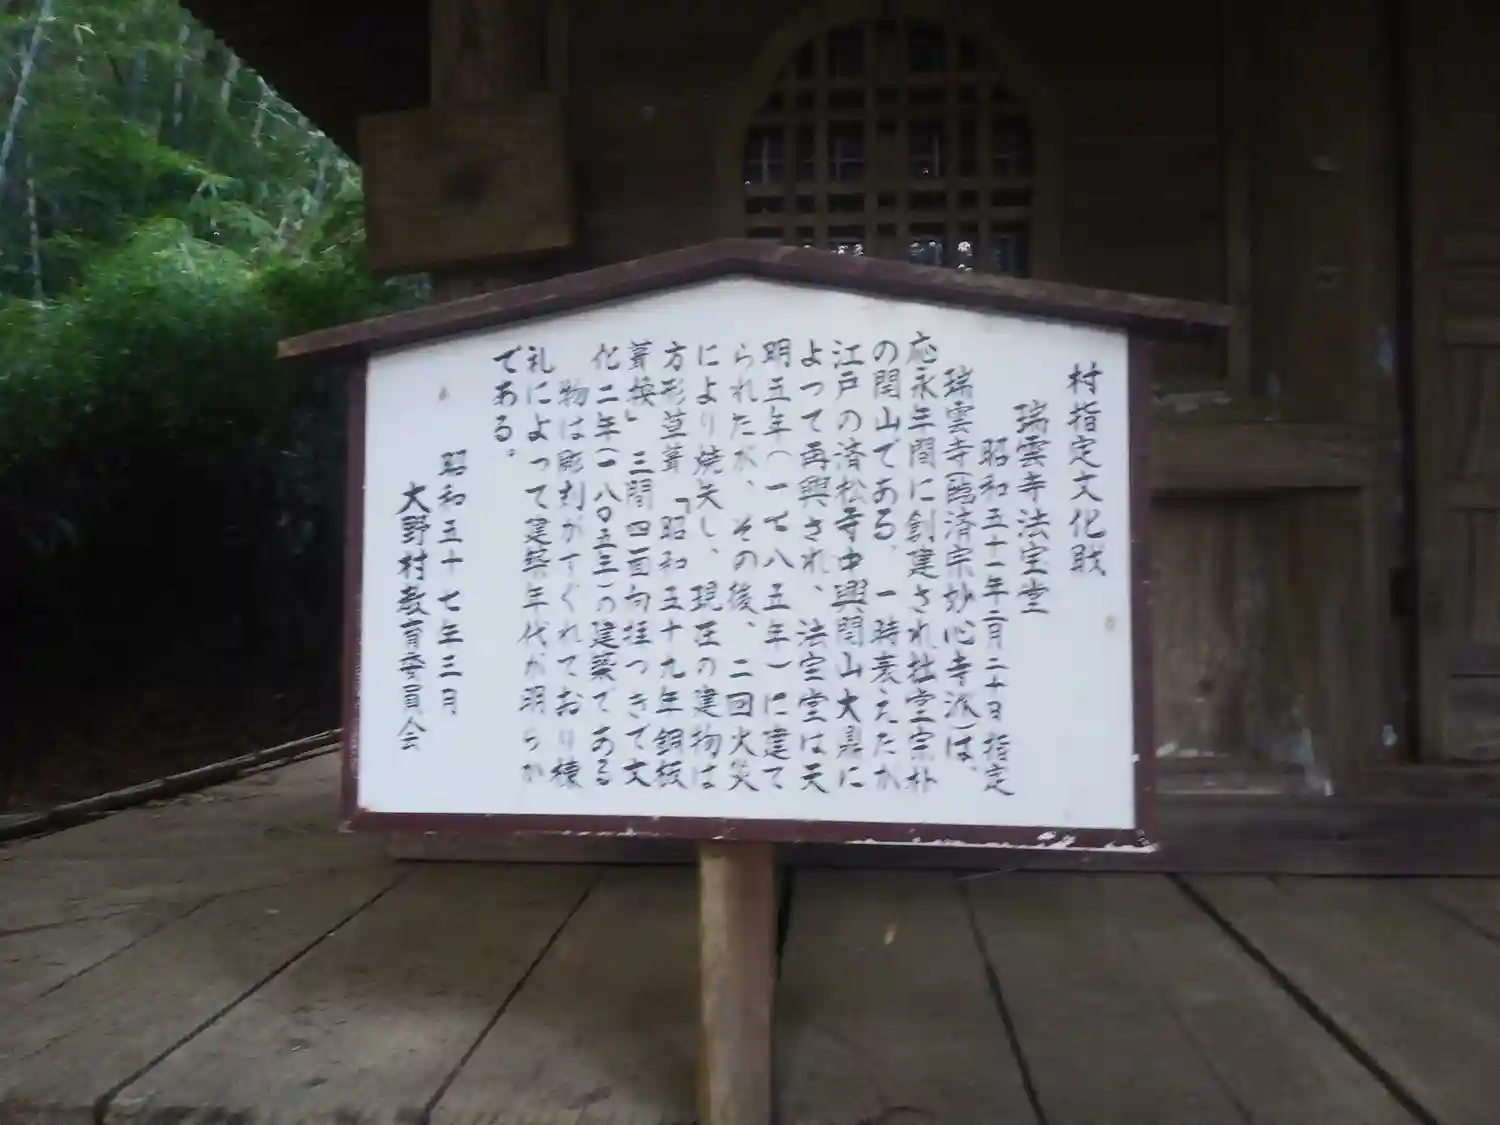 村指定文化財
瑞雲寺法宝堂
昭和五十一年二月二十日指定
瑞雲寺(臨済宗妙心寺派)は、
応永年間に創建され拙堂宗朴
の開山である、一時衰えたが
江戸の済松寺中興開山大鼎に
よって再興され、法宝堂は天
明五年(一七八五年)に建て
られたが、その後、二回火災
により焼失し、現在の建物は
方形萱葺「昭和五十九年銅板
葺換」三間四面向拝つきで文
化二年(一八〇五三)の建築である
物は彫刻がすぐれており棟
札によって建築年代が明らか
である。
昭和五十七年三月
大野村教育委員会